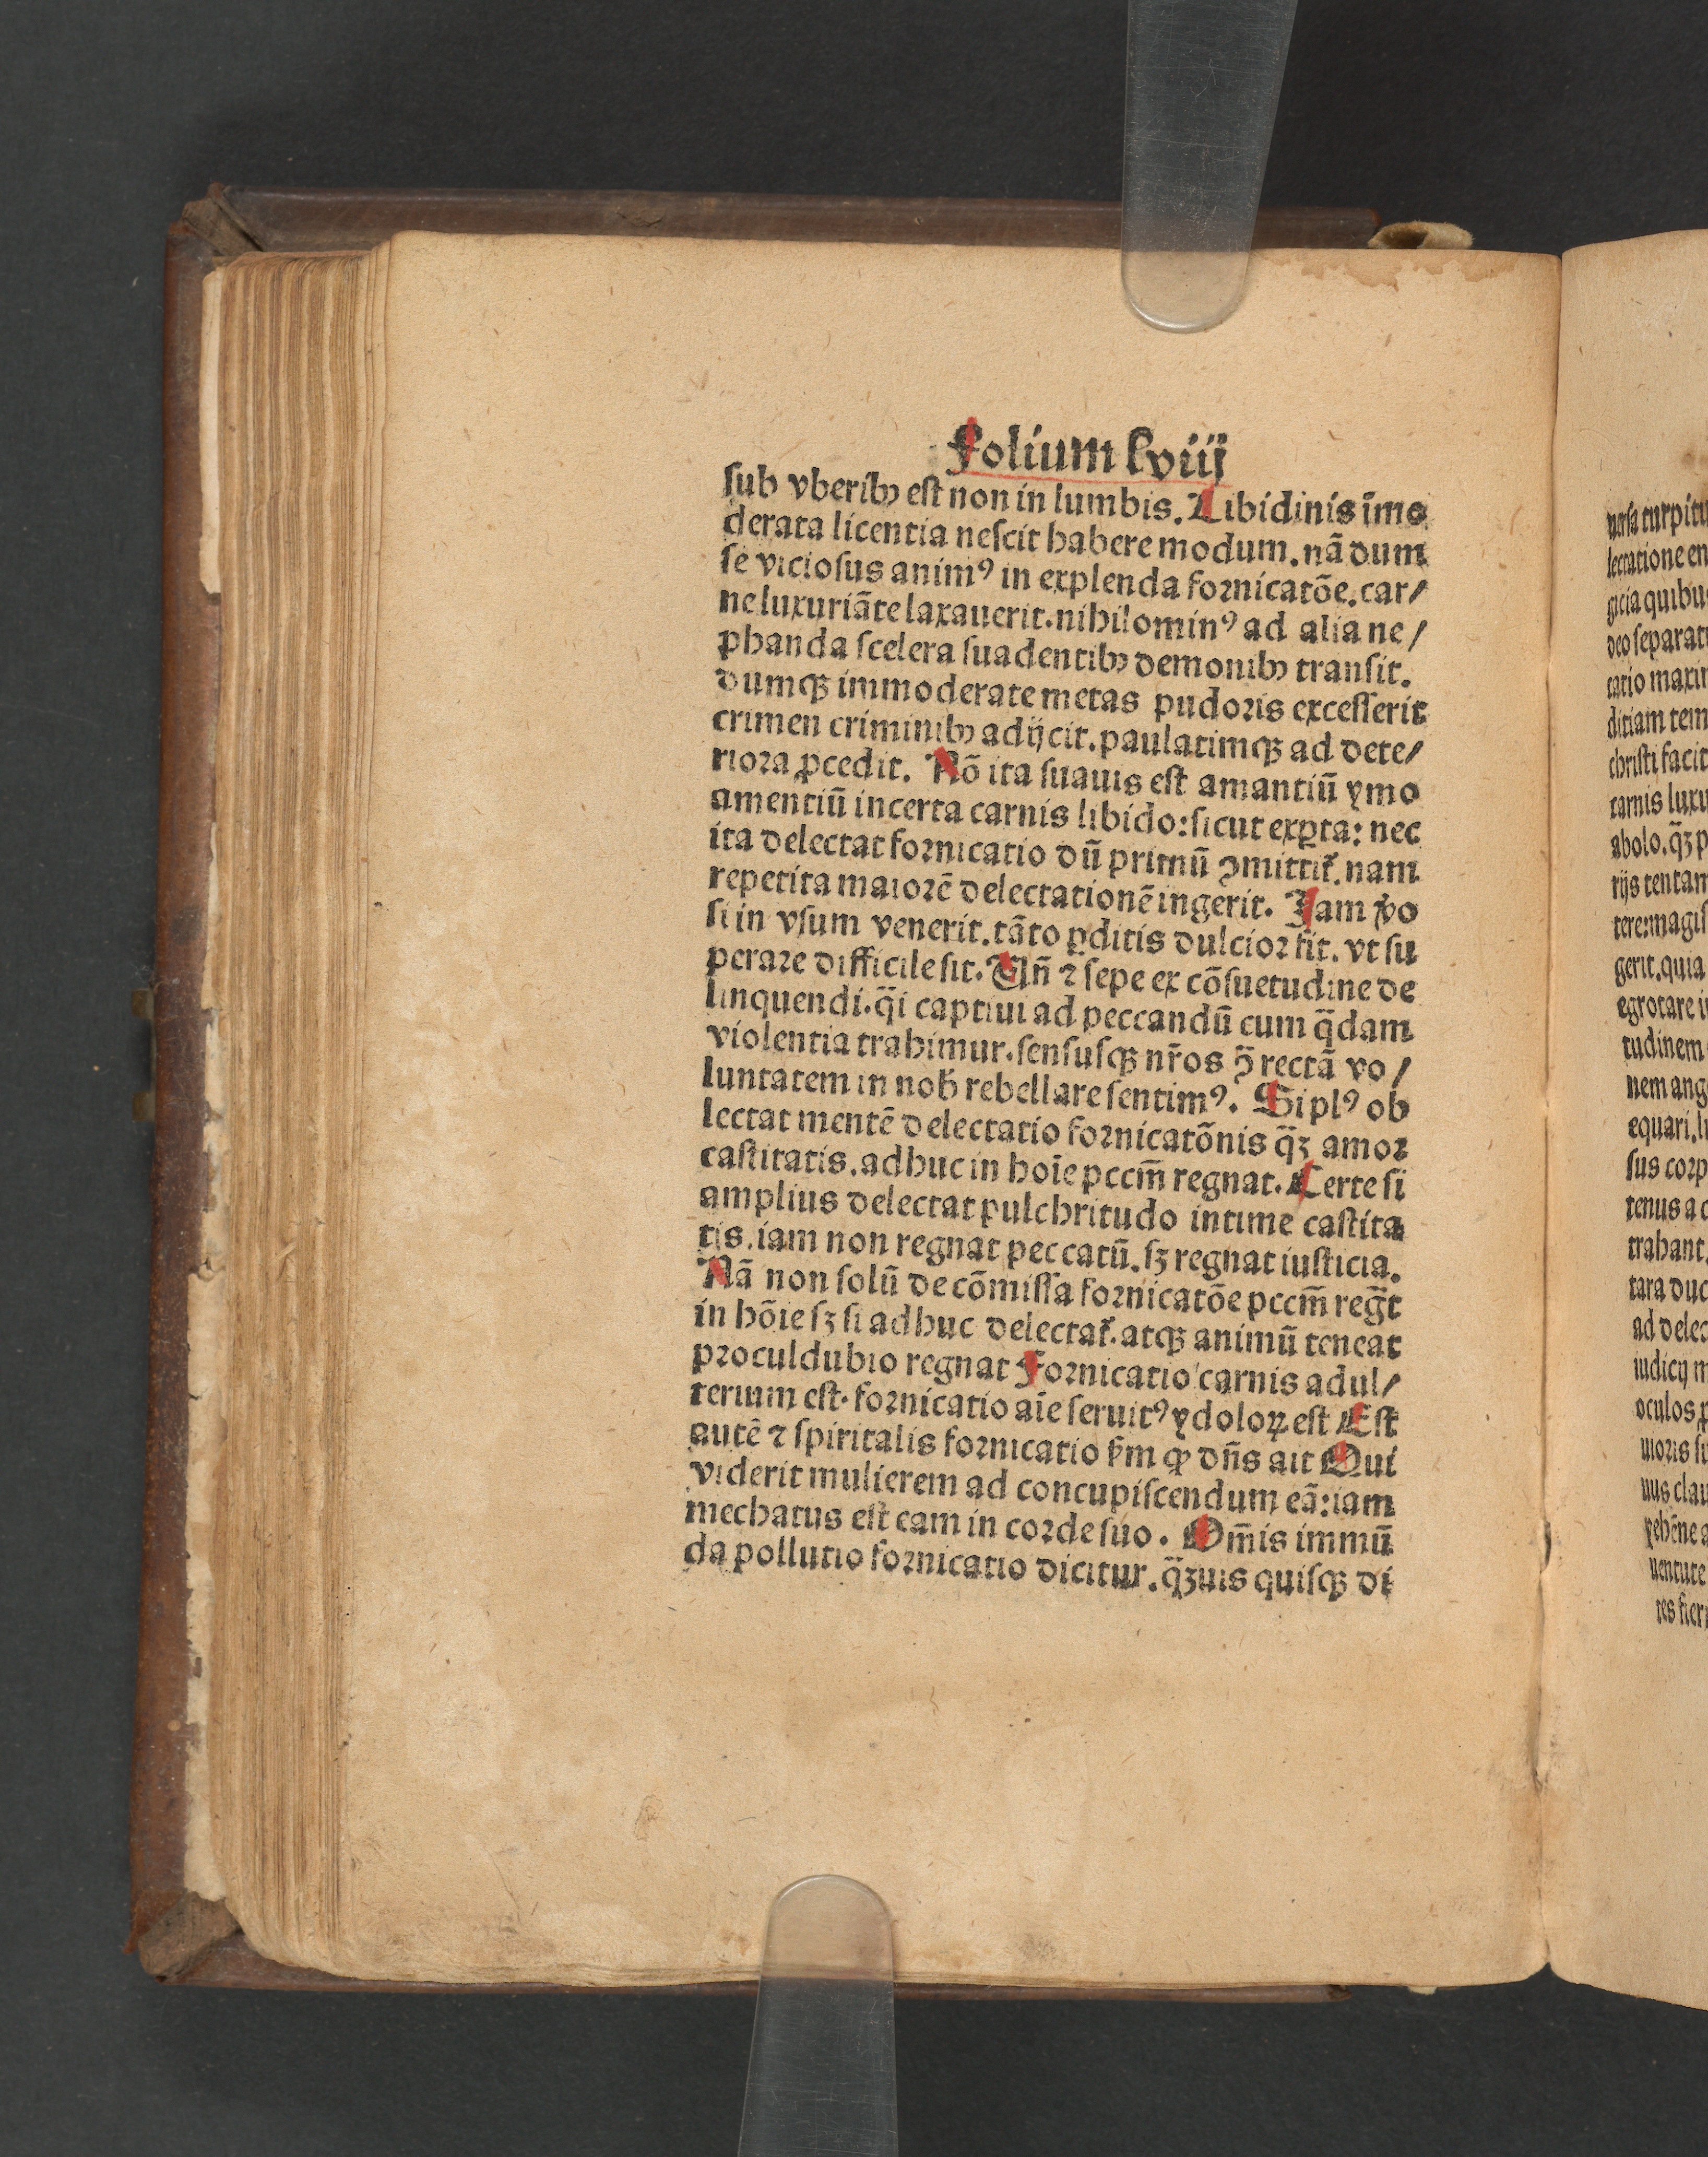 Folium lviij
ſub vberibꝰ eſt non in lumbis. Libidinis īmo
derata licentia neſcit habere modum. nã dum
ſe vicioſus animꝰ in explenda fornicatõe. car/
ne luxuriãte laxauerit. nihilominꝰ ad alia ne/
phanda ſcelera ſuadentibꝰ demonibꝰ tranſit.
dumqꝫ immoderate metas pudoris exceſſerit
crimen criminibꝰ adijcit. paulatimqꝫ ad dete/
riora ꝓcedit. Nõ ita ſuauis eſt amantiũ ymo
amentiũ incerta carnis libido: ſicut exꝑta: nec
ita delectat fornicatio dũ primũ ꝯmittit᷑. nam
repetita maiorẽ delectationẽ ingerit. Iam v̾o
ſi in vſum venerit. tãto ꝑditis dulcior fit. vt ſu
perare difficile ſit. Vñ ⁊ ſepe ex cõſuetudine de
linquendi. q̃i captiui ad peccandũ cum q̃dam
violentia trahimur. ſenſuſqꝫ nr̃os ꝯ̃ rectã vo/
luntatem in nob̃ rebellare ſentimꝰ. Si plꝰ ob
lectat mentẽ delectatio fornicatõnis q̃ꝫ amor
caſtitatis. adhuc in hoĩe pccm̃ regnat. Certe ſi
amplius delectat pulchritudo intime caſtita
tis. iam non regnat peccatũ. ſꝫ regnat iuſticia.
Nã non ſolũ de cõmiſſa fornicatõe pccm̃ reg̃t
in hõie ſꝫ ſi adhuc delectat᷑. atqꝫ animũ teneat
proculdubio regnat Fornicatio carnis adul/
terium eſt. fornicatio aĩe ſeruitꝰ ydoloꝝ eſt Eſt
autẽ ⁊ ſpiritalis fornicatio ẜm ꝙ dñs ait Qui
viderit mulierem ad concupiſcendum eã: iam
mechatus eſt eam in corde ſuo. Om̃is immũ
da pollutio fornicatio dicitur. q̃ꝫuis quiſqꝫ di